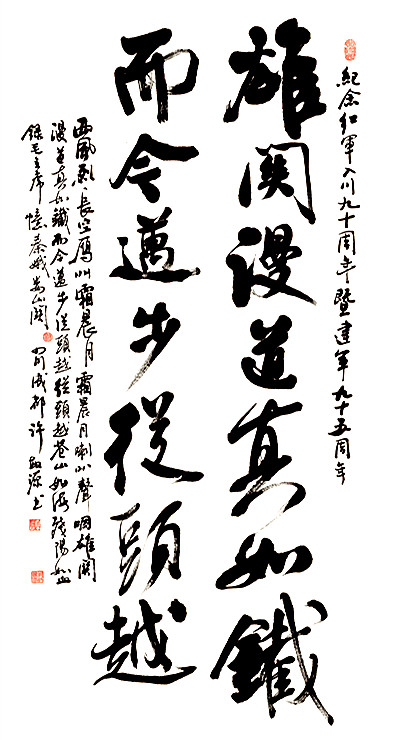 紀念红軍入川九十周年暨建军九十五周年
雄関漫道真如鐵
而今邁步從頭越
西風烈長空雁叫霜晨月霜晨月喇叭聲咽雄関
漫道真如鐵而今邁步從頭越從頭越蒼山如海殘陽如血
錄毛主席憶秦娥婁山関 蜀成都許源书